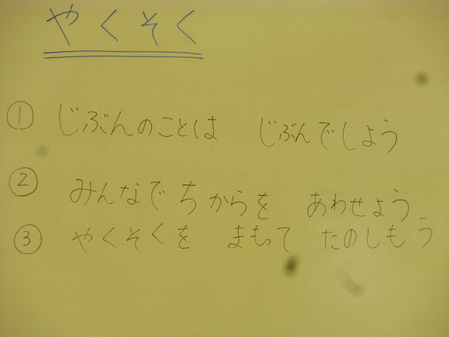 やくそく
① じぶんのことは じぶんでしよう
② みんなでちからを あわせよう
③ やくそくを まもって たのしもう